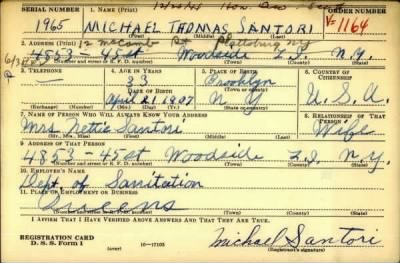 SERIAL NUMBER 1. NAME (Print) ORDER NUMBER
1965 MICHAEL THOMAS SANTORI V-1164
(First) (Middle) (Last)
2. ADDRESS (Print) 12 Macomb St Plattsburg NY
4853-45st Woodside L.I. N.Y.
(Number and street or R. F. D. number) (Town) (County) (State)
3. TELEPHONE 4. AGE IN YEARS 5. PLACE OF BIRTH 6. COUNTRY OF CITIZENSHIP
33 Brooklyn
DATE OF BIRTH (Town or county)
April 21 1907 N Y U.S.A.
(Exchange) (Number) (Mo.) (Day) (Yr.) (State or country)
7. NAME OF PERSON WHO WILL ALWAYS KNOW YOUR ADDRESS 8. RELATIONSHIP OF THAT PERSON
Mrs. Nettie Santori Wife
(Mr., Mrs., Miss) (First) (Middle) (Last)
9. ADDRESS OF THAT PERSON
4853-45st Woodside L.I. N.Y.
(Number and street or R. F. D. number) (Town) (County) (State)
10. EMPLOYER'S NAME
Dept of Sanitation
11. PLACE OF EMPLOYMENT OR BUSINESS
Queens
(Number and street or R. F. D. number) (Town) (County) (State)
I AFFIRM THAT I HAVE VERIFIED ABOVE ANSWERS AND THAT THEY ARE TRUE.
REGISTRATION CARD
D. S. S. Form 1 (over) 16-17105 Michael Santori
(Registrant's signature)